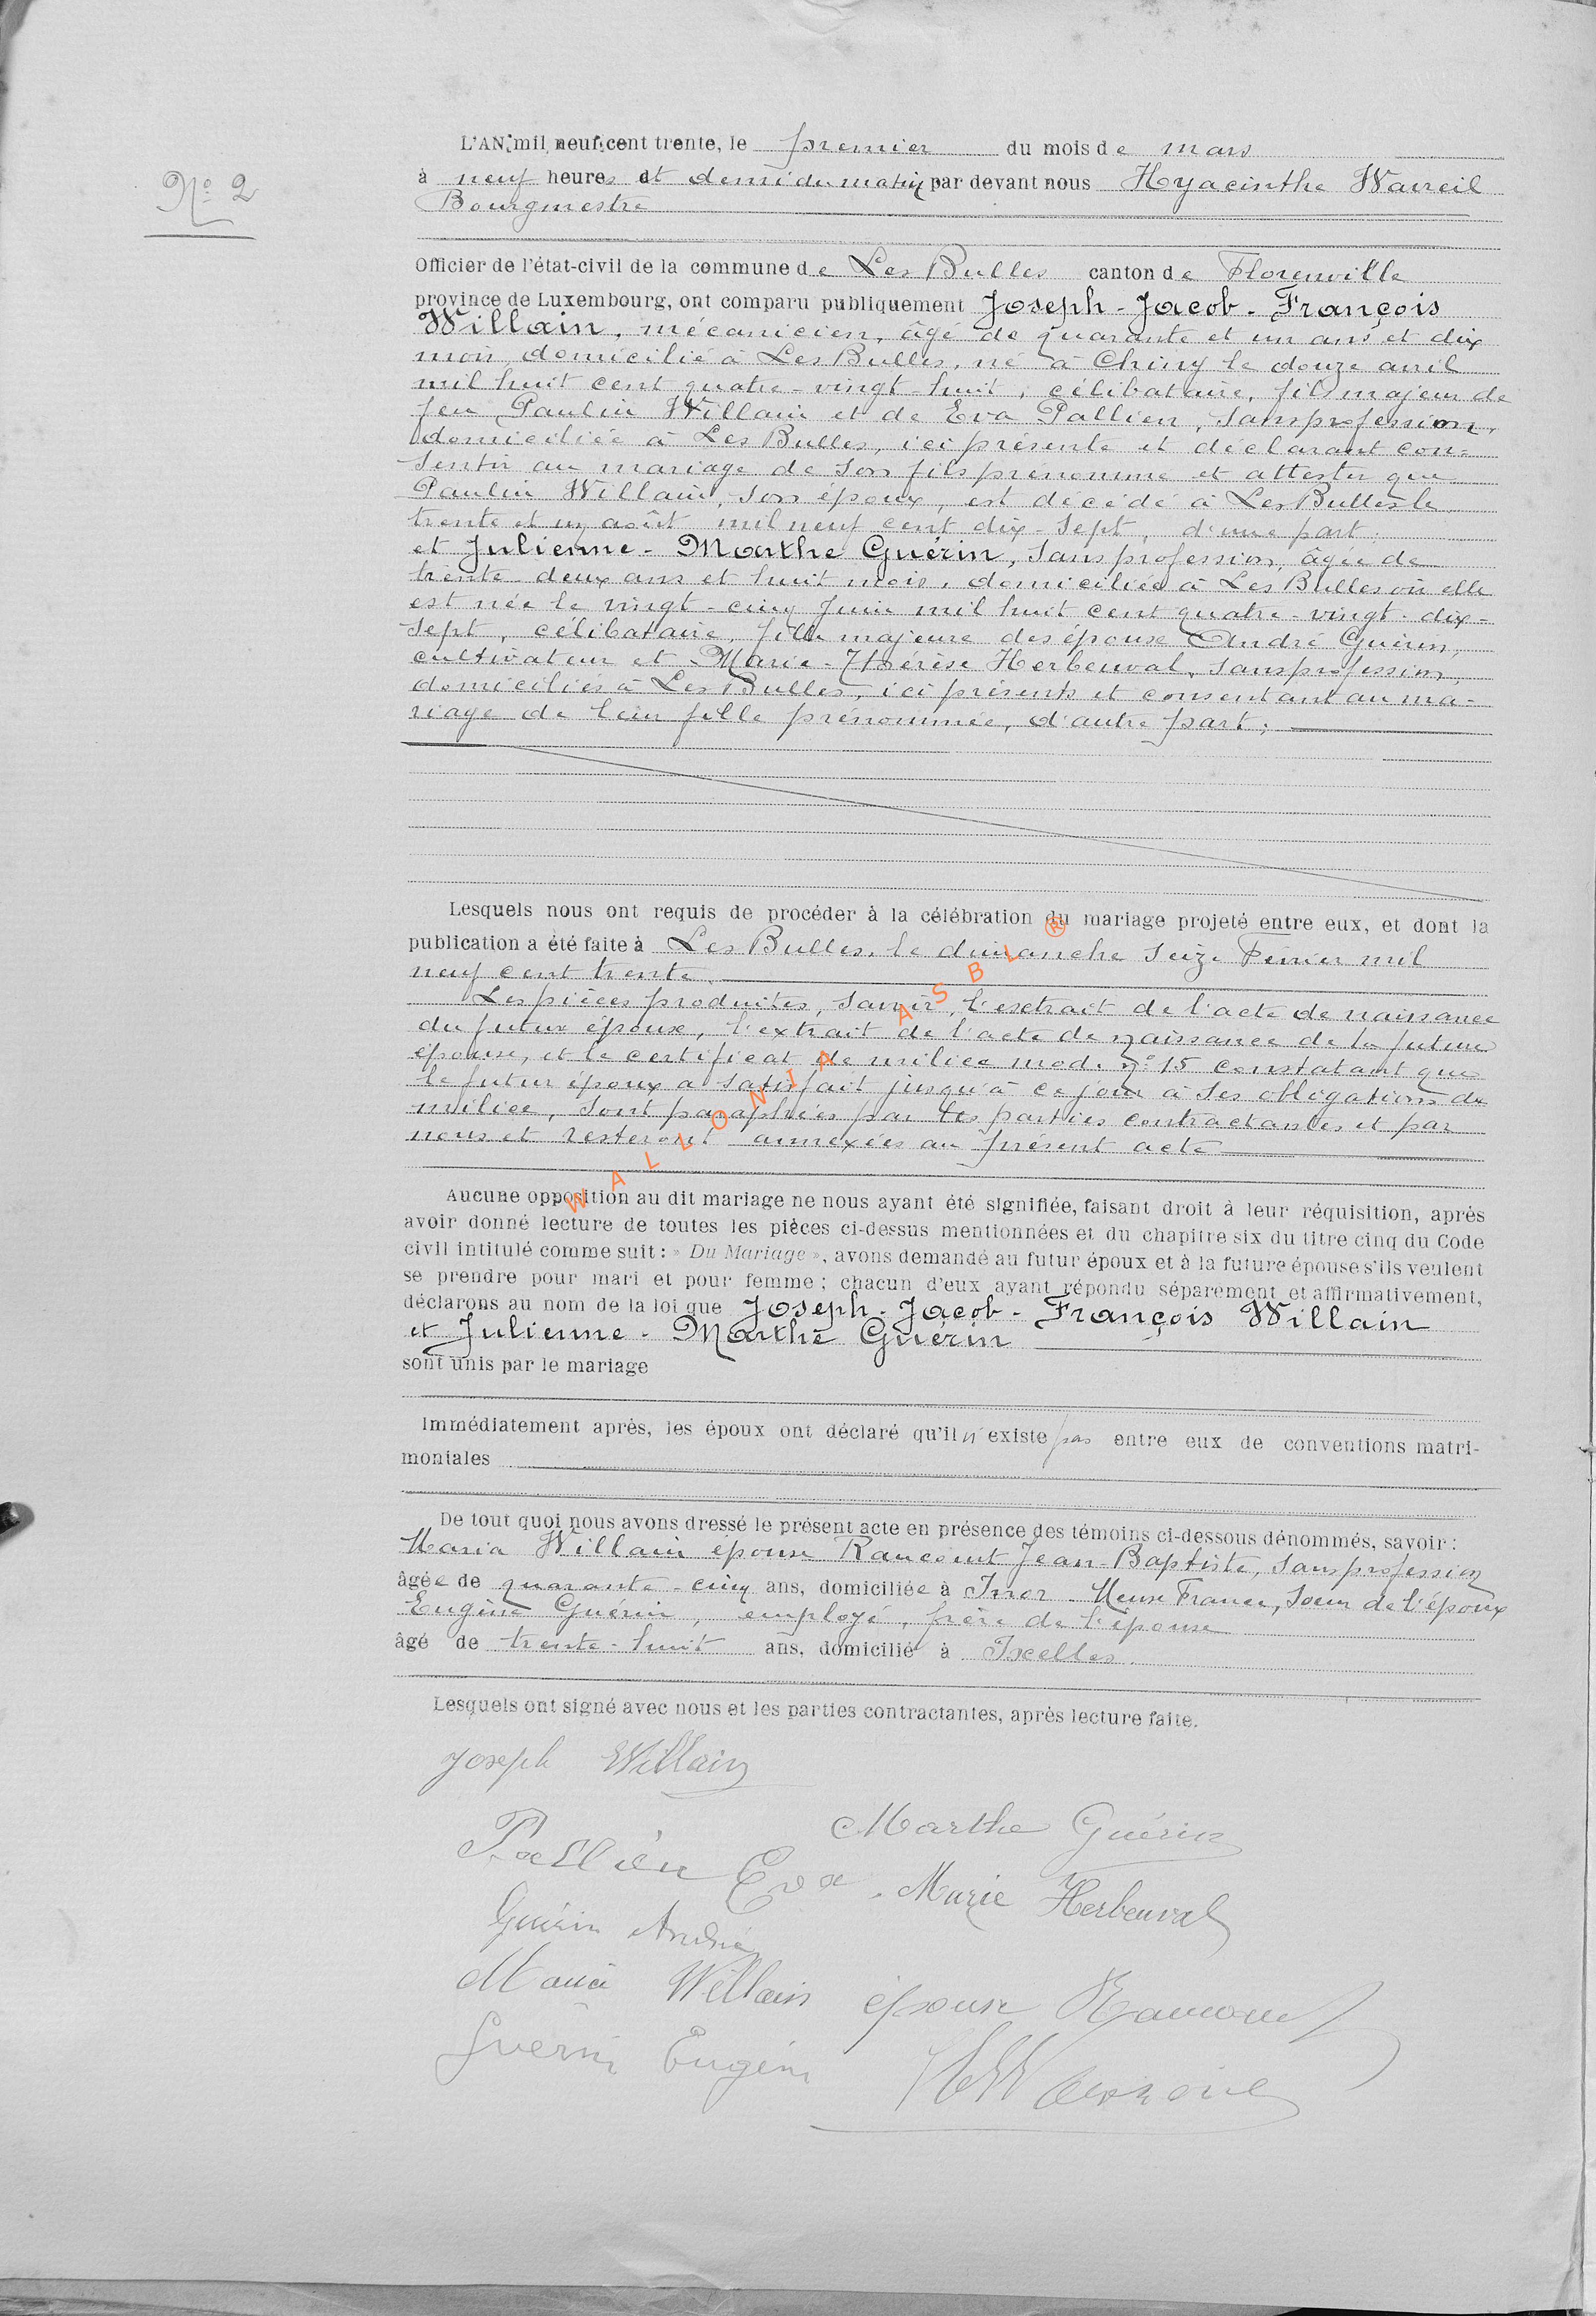 N° 2
L'AN mil neuf cent trente, le premier du mois de mars
à neuf heures et demi du matin par devant nous Hyacinthe Wavreil
Bourgmestre
Officier de l'état-civil de la commune de Les Bulles canton de Florenville
province de Luxembourg, ont comparu publiquement Joseph-Jacob-François
Willain, mécanicien, âgé de quarante et un ans et dix
mois, domicilié à Les Bulles, né à Chiny le douze avril
mil huit cent quatre-vingt-huit, célibataire, fils majeur de
feu Paulin Willain et de Eva Pallien, sans profession,
domiciliée à Les Bulles, ici présente et déclarant con=
sentir au mariage de son fils prénommé et attester que
Paulin Willain, son époux, est décédé à Les Bulles le
trente et un août mil neuf cent dix-sept, d'une part;
et Julienne-Marthe Guérin, sans profession, âgée de
trente-deux ans et huit mois, domiciliée à Les Bulles où elle
est née le vingt-cinq Juin mil huit cent quatre-vingt-dix-
sept, célibataire, fille majeure des époux André Guérin,
cultivateur et Marie-Thérèse Herbeuval, sans profession,
domiciliés à Les Bulles, ici présents et consentant au ma-
riage de leur fille prénommée, d'autre part;
Lesquels nous ont requis de procéder à la célébration du mariage projeté entre eux, et dont la
publication a été faite à Les Bulles, le dimanche seize Février mil
neuf cent trente.
Les pièces produites, savoir, l'extrait de l'acte de naissance
du futur époux, l'extrait de l'acte de naissance de la future
épouse, et le certificat de milice mod. N° 15 constatant que
le futur époux a satisfait jusqu'à ce jour à ses obligations de
milice, sont paraphées par les parties contractantes et par
nous et resteront annexées au présent acte
Aucune opposition au dit mariage ne nous ayant été signifiée, faisant droit à leur réquisition, après
avoir donné lecture de toutes les pièces ci-dessus mentionnées et du chapitre six du titre cinq du Code
civil intitulé comme suit : « Du Mariage », avons demandé au futur époux et à la future épouse s'ils veulent
se prendre pour mari et pour femme ; chacun d'eux ayant répondu séparement et affirmativement,
déclarons au nom de la loi que Joseph-Jacob-François Willain
et Julienne-Marthe Guérin
sont unis par le mariage
Immédiatement après, les époux ont déclaré qu'il n'existe pas entre eux de conventions matri-
moniales
De tout quoi nous avons dressé le présent acte en présence des témoins ci-dessous dénommés, savoir :
Maria Willain épouse Raucourt Jean-Baptiste, sans profession
âgée de quarante-cinq ans, domiciliée à Inor-Meuse France, soeur de l'époux
Eugène Guérin, employé, frère de l'épouse
âgé de trente-huit ans, domicilié à Ixelles.
Lesquels ont signé avec nous et les parties contractantes, après lecture faite.
Joseph Willain
Marthe Guérin
Pallien Eva
Marie Herbeuval
Guérin André
Maria Willain épouse Raucourt
Guérin Eugène
H Wavreil
WALLONIA ASBL ®